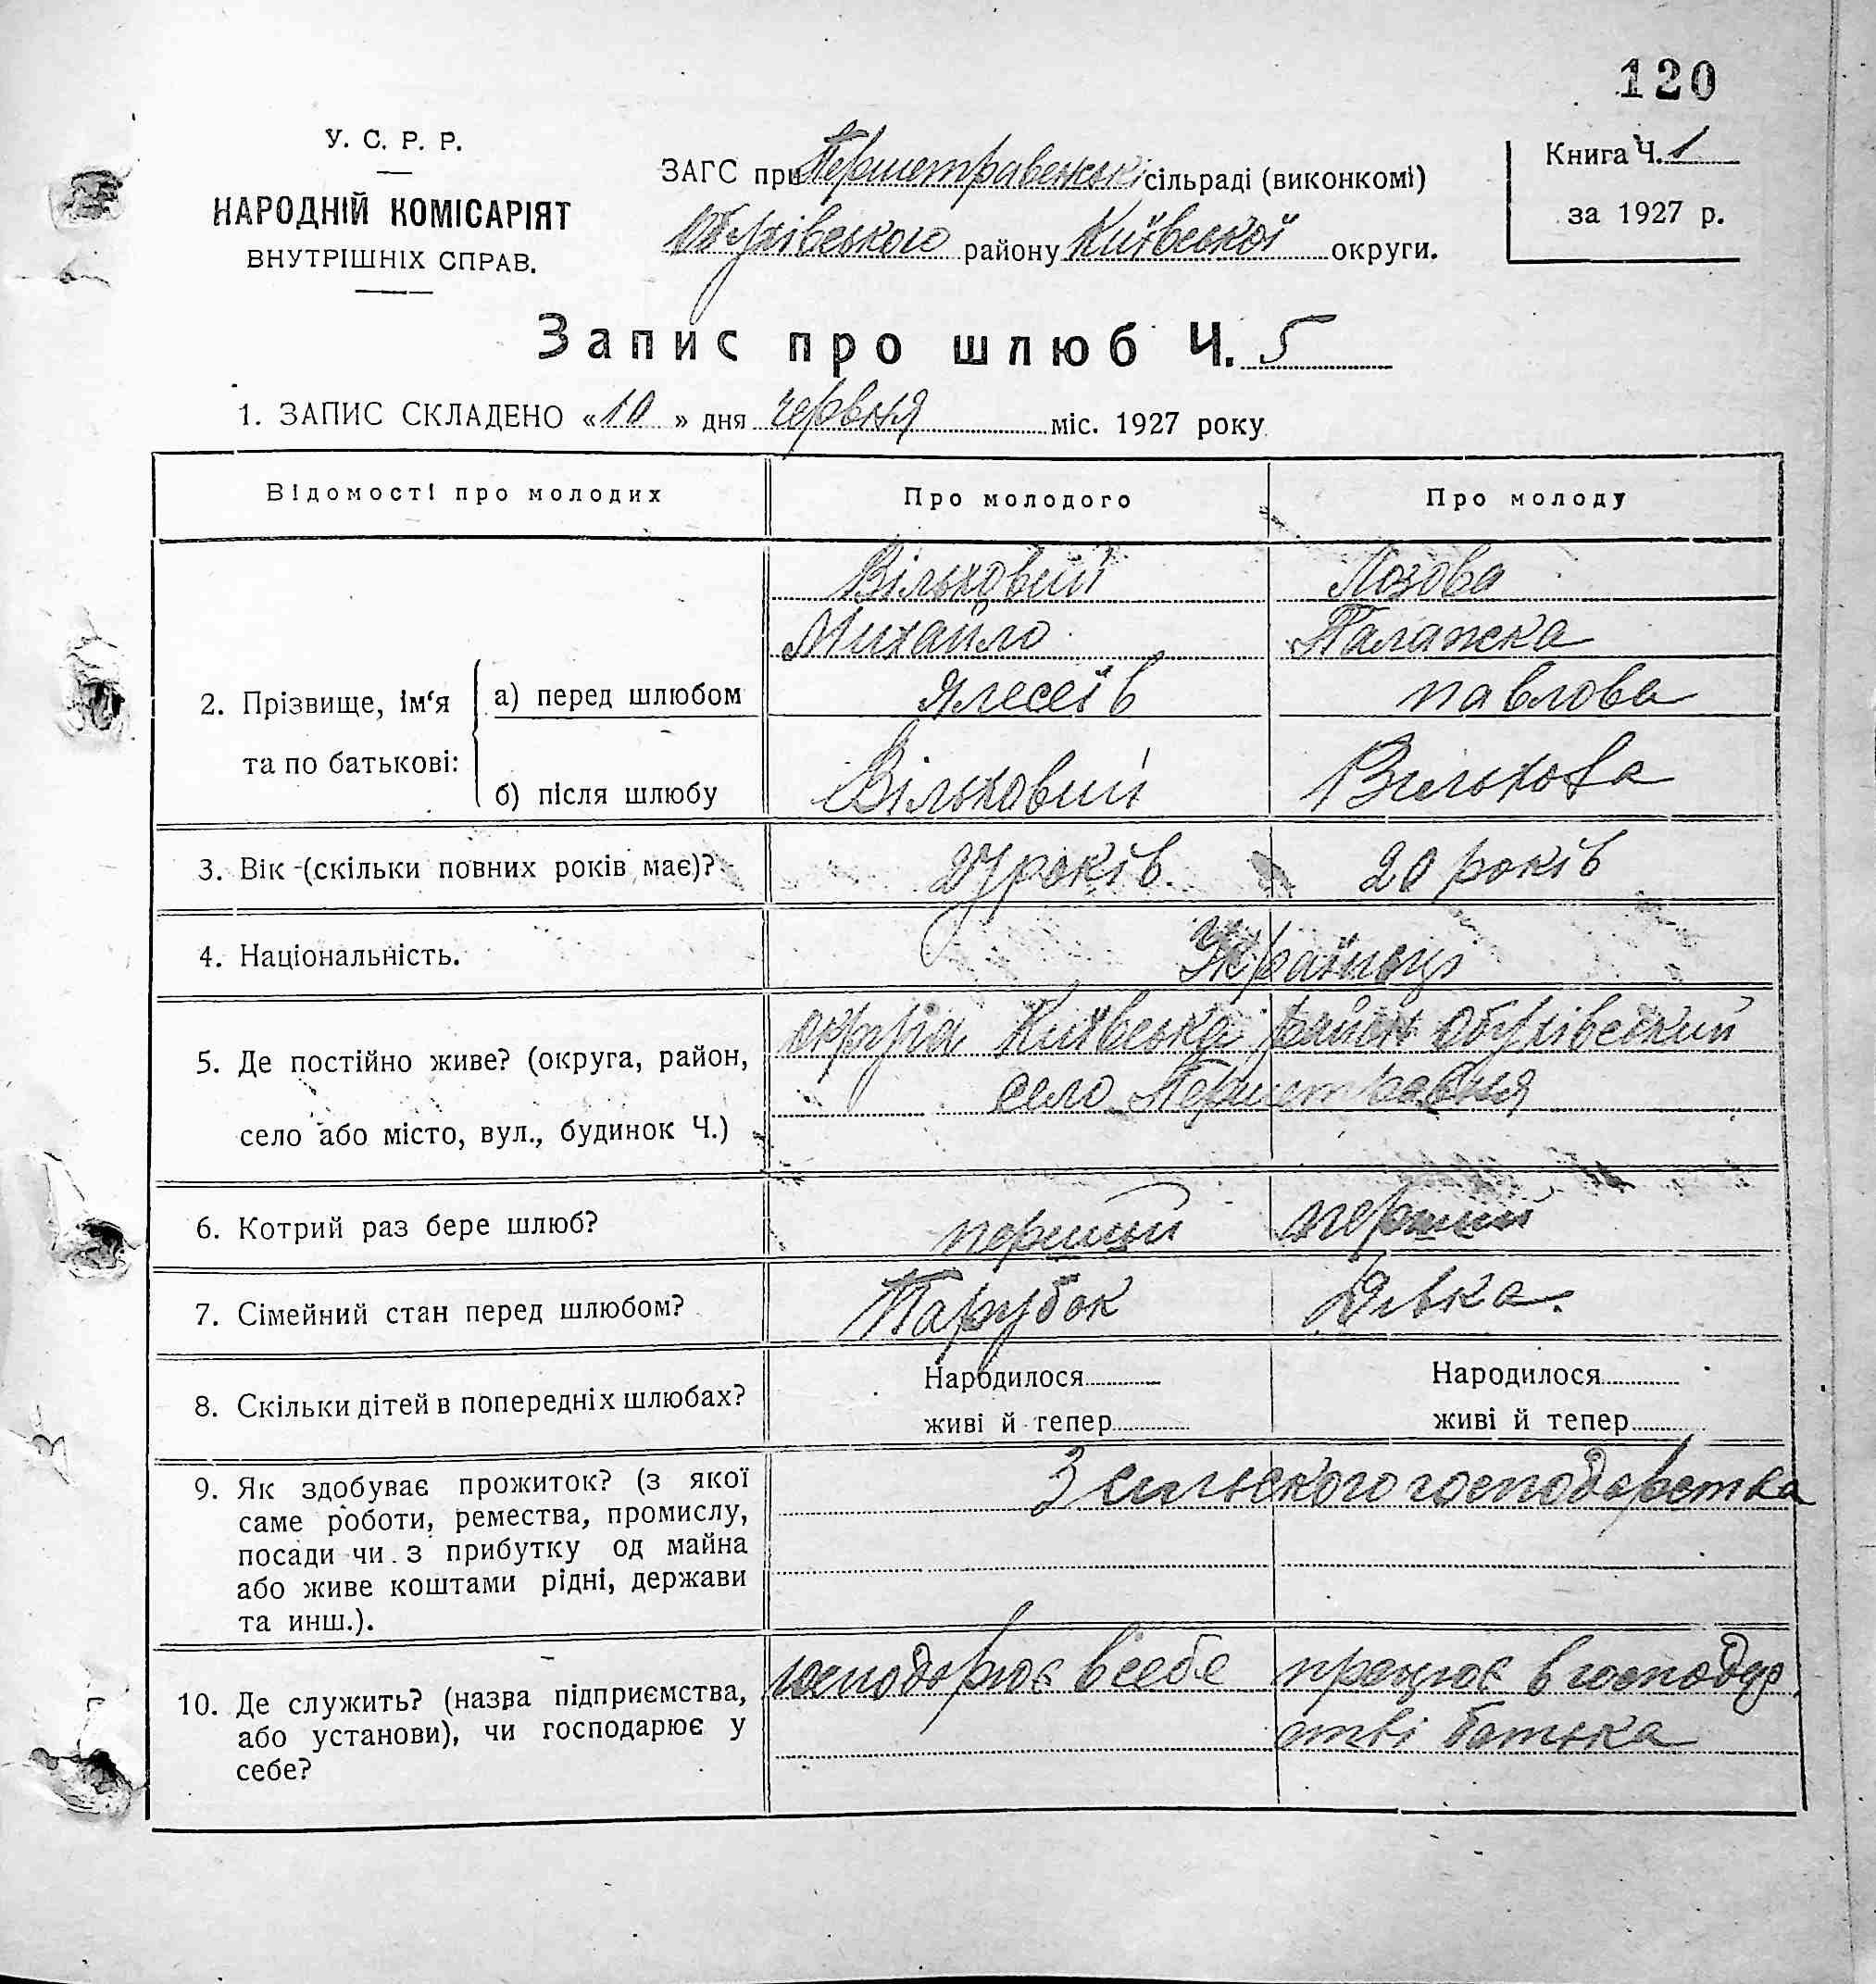 120
У. С. Р. Р.
НАРОДНІЙ КОМІСАРІЯТ
ВНУТРІШНІХ СПРАВ.
ЗАГС при Першетравенські сільраді (виконкомі)
Обухівського району Київської округи.
Книга Ч. 1
за 1927 р.
Запис про шлюб Ч. 5
1. ЗАПИС СКЛАДЕНО «10» дня червня міс. 1927 року
Відомості про молодих
Про молодого
Про молоду
2. Прізвище, ім‘я та по батькові:
а) перед шлюбом
Вільховий
Михайло
Лозова
Палажка
павлова
б) після шлюбу
Вільховий
Вильхова
3. Вік (скільки повних років має)?
років
20 років
4. Національність.
Українці
5. Де постійно живе? (округа, район,
село або місто, вул., будинок Ч.)
округа Київська район Обухівський
село Першетравня
6. Котрий раз бере шлюб?
перший
перший
7. Сімейний стан перед шлюбом?
Парубок
Дівка.
8. Скільки дітей в попередніх шлюбах?
Народилося
живі й тепер
Народилося
живі й тепер
9. Як здобуває прожиток? (з якої
саме роботи, ремества, промислу,
посади чи з прибутку од майна
або живе коштами рідні, держави
та инш.).
З сильского господарства
10. Де служить? (назва підприємства,
або установи), чи господарює у
себе?
господорює в себе
працює в господар
стві батька